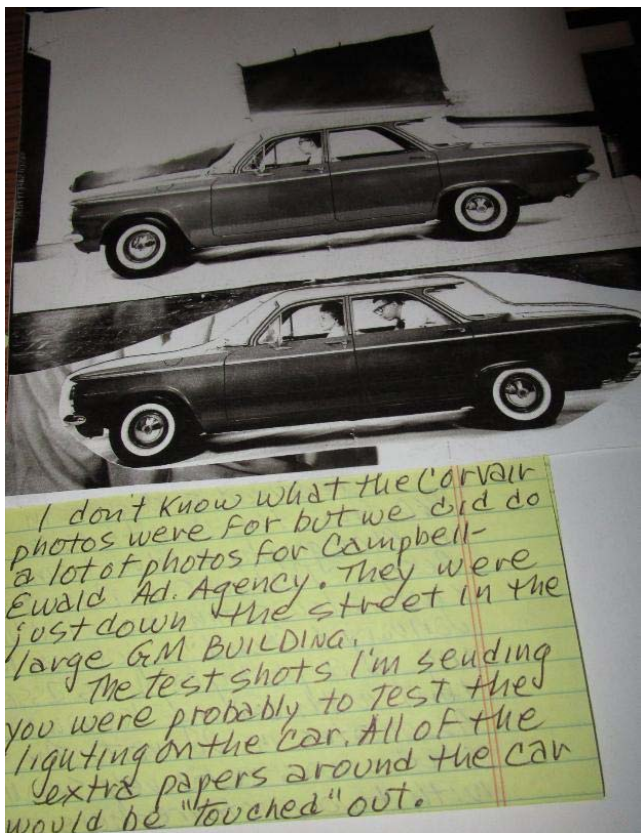 I don't know what the Corvair
photos were for but we did do
a lot of photos for Campbell-
Ewald Ad. Agency. They were
just down the street in the
large GM BUILDING.
The test shots I'm sending
you were probably to test the
lighting on the car. All of the
extra papers around the car
would be "touched" out.